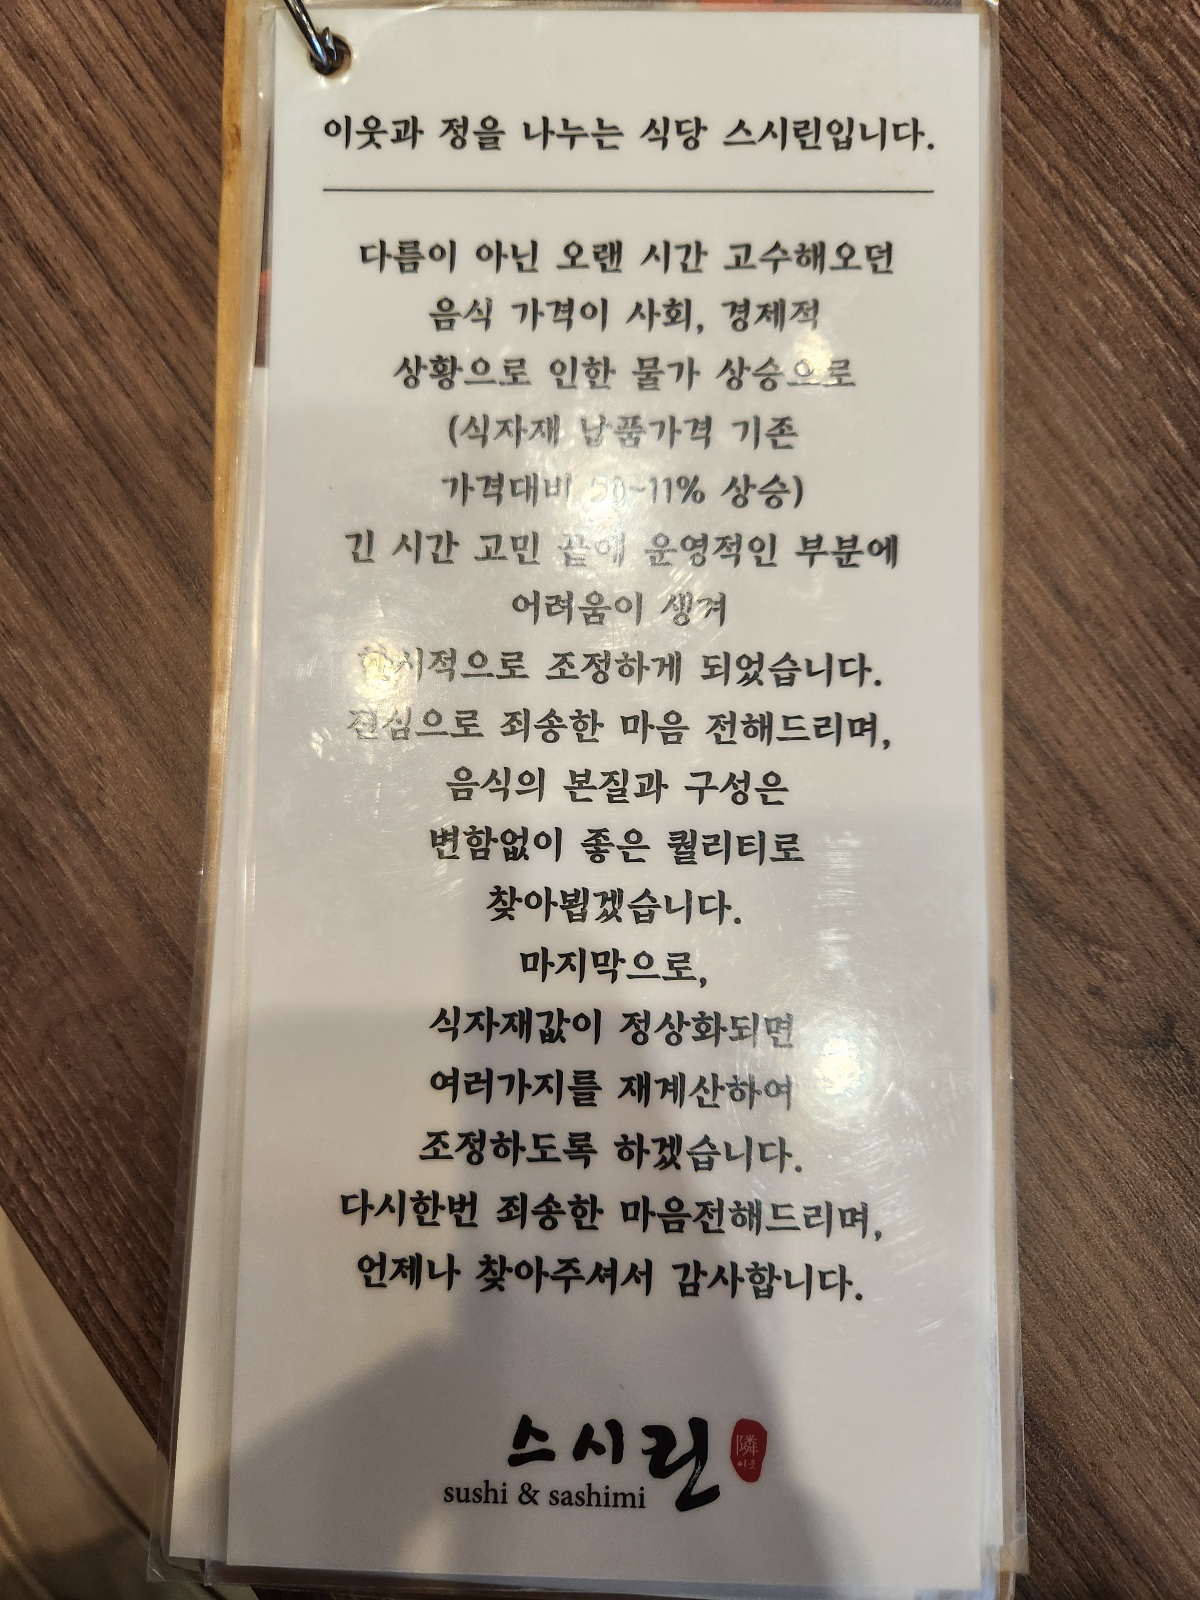 이웃과 정을 나누는 식당 스시린입니다.
다름이 아닌 오랜 시간 고수해오던
음식 가격이 사회, 경제적
상황으로 인한 물가 상승으로
(식자재 납품가격 기존
가격대비 50~11% 상승)
긴 시간 고민 끝에 운영적인 부분에
어려움이 생겨
한시적으로 조정하게 되었습니다.
진심으로 죄송한 마음 전해드리며,
음식의 본질과 구성은
변함없이 좋은 퀄리티로
찾아뵙겠습니다.
마지막으로,
식자재값이 정상화되면
여러가지를 재계산하여
조정하도록 하겠습니다.
다시한번 죄송한 마음전해드리며,
언제나 찾아주셔서 감사합니다.
스시린
隣
이웃
sushi & sashimi